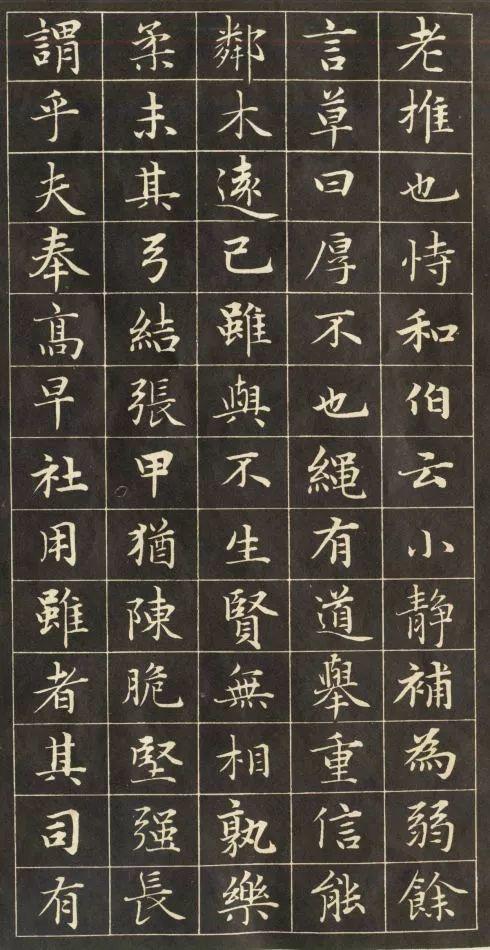 老推也恃和伯云小静補為弱餘
言草曰厚不也繩有道舉重信能
鄰木遠己雖與不生賢無相孰樂
柔未其弓結張甲猶陳脆堅强長
謂乎夫奉高早社用雖者其司有